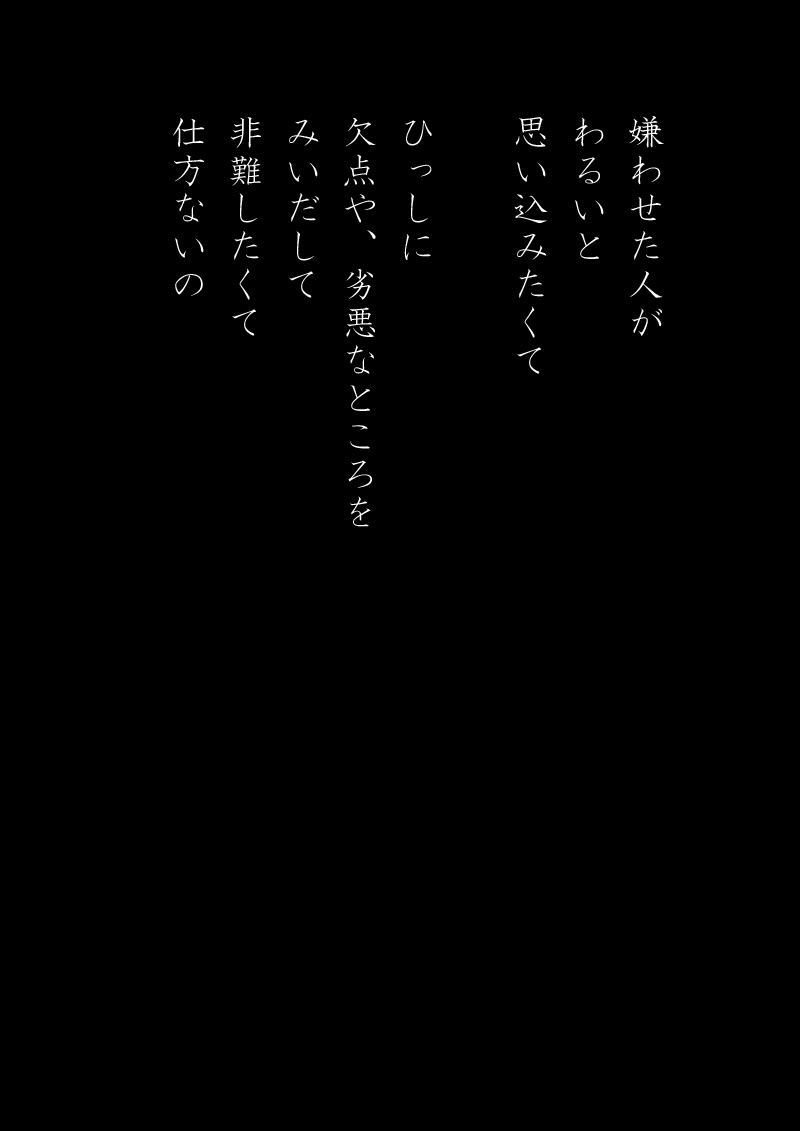 嫌わせた人が
わるいと
思い込みたくて
ひっしに
欠点や、劣悪なところを
みいだして
非難したくて
仕方ないの